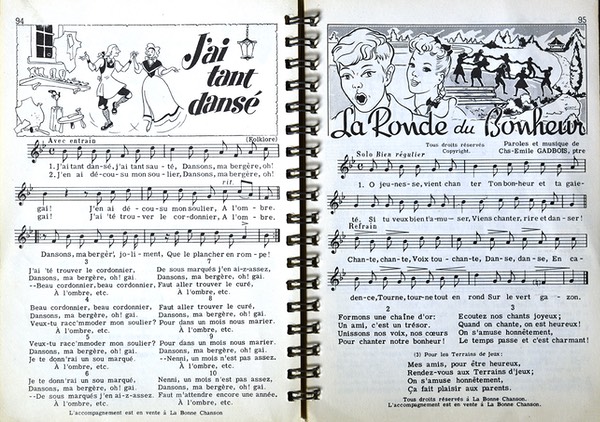 94
J'ai
tant
dansé
Avec entrain
(Folklore)
1. J'ai tant dansé, j'ai tant sau - té, Dansons, ma bergère, oh!
2. J'en ai dé-cou-su mon sou-lier, Dansons, ma bergère, oh!
rit.
gai! J'en ai dé - cou-su mon soulier, A l'om - bre.
gai! J'ai 'té trou-ver le cor-donnier, A l'om - bre.
Dansons, ma berger', jo-li - ment, Que le plancher en rom - pe!
3
J'ai 'té trouver le cordonnier,
Dansons, ma bergère, oh! gai.
--Beau cordonnier, beau cordonnier,
À l'ombre, etc.
4
Beau cordonnier, beau cordonnier,
Dansons, ma bergère, oh! gai.
Veux-tu racc'mmoder mon soulier?
À l'ombre, etc.
5
Veux-tu racc'mmoder mon soulier?
Dansons, ma bergère, oh! gai.
Je te donn'rai un sou marqué.
À l'ombre, etc.
6
Je te donn'rai un sou marqué,
Dansons, ma bergère, oh! gai.
--De sous marqués j'en ai-z-assez,
À l'ombre, etc.
7
De sous marqués j'en ai-z-assez,
Dansons, ma bergère, oh! gai.
Faut aller trouver le curé,
À l'ombre, etc.
8
Faut aller trouver le curé,
Dansons, ma bergère, oh! gai.
Pour dans un mois nous marier.
À l'ombre, etc.
9
Pour dans un mois nous marier,
Dansons, ma bergère, oh! gai.
--Nenni, un mois n'est pas assez,
À l'ombre, etc.
10
Nenni, un mois n'est pas assez,
Dansons, ma bergère, oh! gai.
Faut m'attendre encore une année.
À l'ombre, etc.
L'accompagnement est en vente à La Bonne Chanson
95
La Ronde du Bonheur
Tous droits réservés
Copyright.
Paroles et musique de
Chs-Emile GADBOIS, ptre
Solo Bien régulier
1. O jeu-nes-se, vient chan ter Ton bon-heur et ta gaie-
té. Si tu veux bien t'a-mu - ser, Viens chanter, rire et dan-ser!
Refrain
Chan-te, chan-te, Voix tou - chan-te, Dan-se, dan-se, En ca-
den-ce, Tourne, tour-ne tout en rond Sur le vert ga - zon.
2
Formons une chaîne d'or:
Un ami, c'est un trésor.
Unissons nos voix, nos cœurs
Pour chanter notre bonheur!
3
Ecoutez nos chants joyeux;
Quand on chante, on est heureux!
On s'amuse honnêtement,
Le temps passe et c'est charmant!
(3) Pour les Terrains de Jeux:
Mes amis, pour être heureux,
Rendez-vous aux Terrains d'jeux;
On s'amuse honnêtement,
Ça fait plaisir aux parents.
Tous droits réservés à La Bonne Chanson.
L'accompagnement est en vente à La Bonne Chanson.